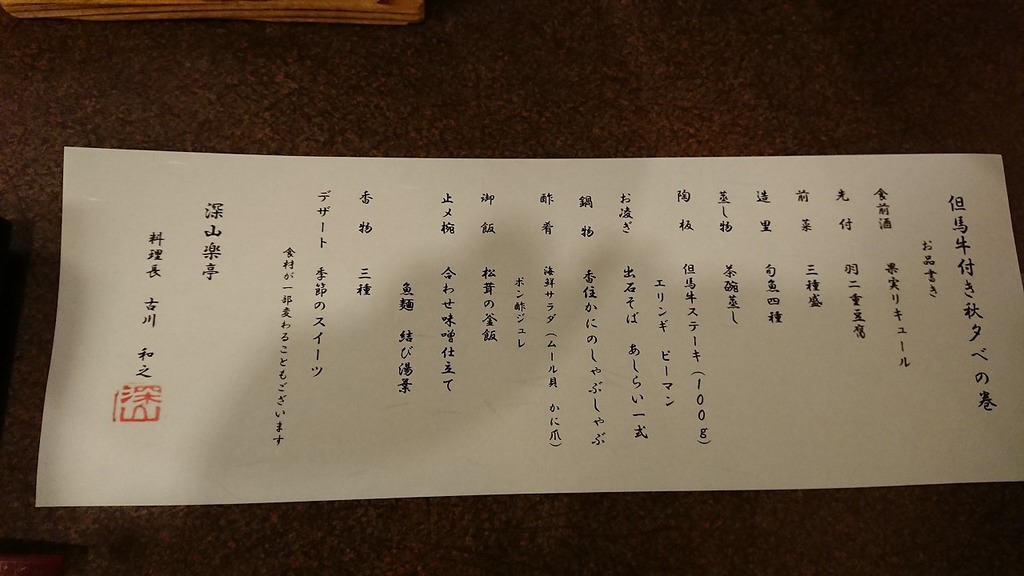 但馬牛付き秋夕べの巻
お品書き
食前酒 果実リキュール
先付 羽二重豆腐
前菜 三種盛
造里 旬魚四種
蒸し物 茶碗蒸し
陶板 但馬牛ステーキ(100g)
エリンギ ピーマン
お凌ぎ 出石そば あしらい一式
鍋物 香住かにのしゃぶしゃぶ
酢肴 海鮮サラダ(ムール貝 かに爪)
ポン酢ジュレ
御飯 松茸の釜飯
止メ椀 合わせ味噌仕立て
魚麺 結び湯葉
香物 三種
デザート 季節のスイーツ
食材が一部変わることもございます
深山楽亭
料理長 古川 和之
深山